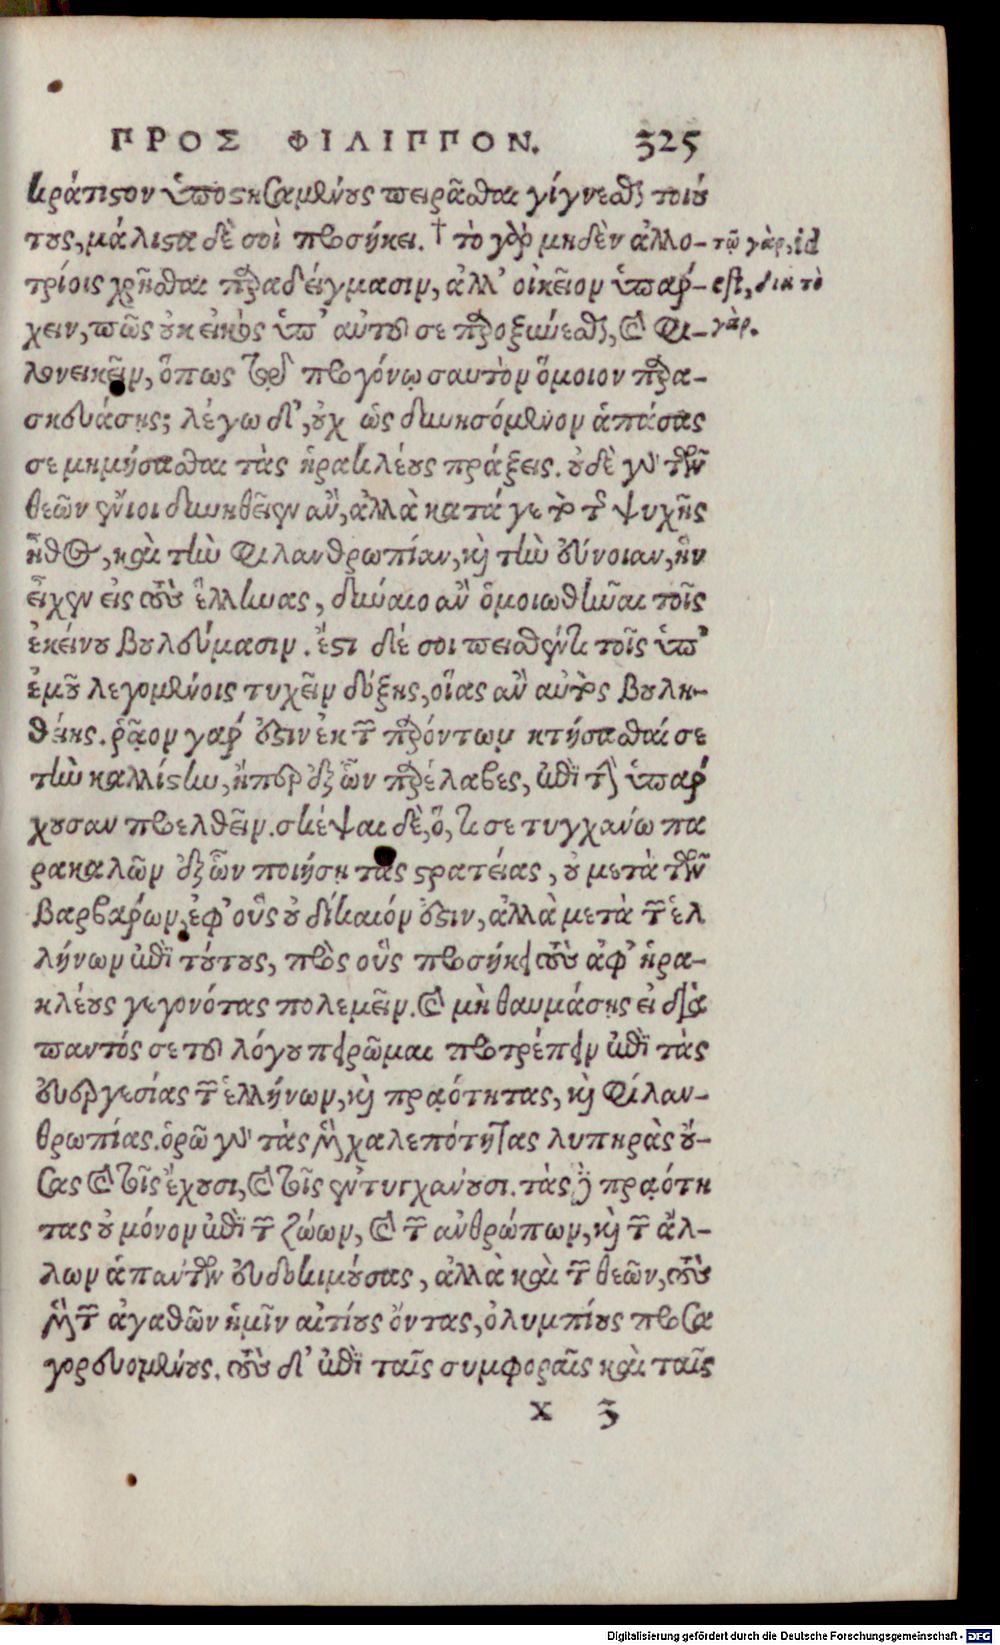 ΠΡΟΣ ΦΙΛΙΠΠΟΝ. 325
κράτιστον ὑποστησαμένους πειρᾶσθαι γίγνεσθαι τοιού
τους, μάλιστα δὲ σοὶ προσήκει. † τὸ γὰρ μηδὲν ἀλλο-
τρίοις χρῆσθαι παραδείγμασιν, ἀλλ' οἰκεῖον ὑπάρ-
χειν, πῶς οὐκ εἰκὸς ὑπ' αὐτοῦ σε παροξύνεσθαι, καὶ φι-
λονεικεῖν, ὅπως τῷ προγόνῳ σαυτὸν ὅμοιον παρα-
σκευάσῃς; λέγω δ', οὐχ ὡς δυνησόμενον ἁπάσας
σε μιμήσασθαι τὰς ἡρακλέους πράξεις. οὐδὲ γὰρ τῶν
θεῶν ἔνιοι δυνηθεῖεν ἂν, ἀλλὰ κατά γε τὸ τῆς ψυχῆς
ἦθος, καὶ τὴν φιλανθρωπίαν, καὶ τὴν εὔνοιαν, ἣν
εἶχεν εἰς τοὺς ἕλληνας, δύναιο ἂν ὁμοιωθῆναι τοῖς
ἐκείνου βουλεύμασιν. ἔστι δέ σοι πεισθέντι τοῖς ὑπ'
ἐμοῦ λεγομένοις τυχεῖν δόξης, οἵας ἂν αὐτὸς βουλη-
θείης. ῥᾷον γάρ ἐστιν ἐκ τῶν παρόντων κτήσασθαί σε
τὴν καλλίστην, ἤπερ ἐξ ὧν παρέλαβες, ἐπὶ τὴν ὑπάρ
χουσαν προελθεῖν. σκέψαι δὲ, ὅ, τι σε τυγχάνω πα
ρακαλῶν ἐξ ὧν ποιήσῃ τὰς στρατείας, οὐ μετὰ τῶν
βαρβάρων, ἐφ' οὓς οὐ δίκαιόν ἐστιν, ἀλλὰ μετὰ τῶν ἑλ
λήνων ἐπὶ τούτους, πρὸς οὓς προσήκει τοὺς ἀφ' ἡρα-
κλέους γεγονότας πολεμεῖν. καὶ μὴ θαυμάσῃς εἰ διὰ
παντός σε τοῦ λόγου πειρῶμαι προτρέπειν ἐπὶ τὰς
εὐεργεσίας τῶν ἑλλήνων, καὶ πρᾳότητας, καὶ φιλαν-
θρωπίας. ὁρῶ γὰρ τὰς μὲν χαλεπότητας λυπηρὰς οὔ-
σας καὶ τοῖς ἔχουσι, καὶ τοῖς ἐντυγχάνουσι. τὰς δὲ πρᾳότη
τας οὐ μόνον ἐπὶ τῶν ζώων, καὶ τῶν ἀνθρώπων, καὶ τῶν ἄλ-
λων ἁπάντων εὐδοκιμούσας, ἀλλὰ καὶ τῶν θεῶν, τοὺς
μὲν τῶν ἀγαθῶν ἡμῖν αἰτίους ὄντας, ὀλυμπίους προσα
γορευομένους. τοὺς δ' ἐπὶ ταῖς συμφοραῖς καὶ ταῖς
X 3
τῷ γὰρ, id
est, διὰ τὸ
γὰρ.
Digitalisierung gefördert durch die Deutsche Forschungsgemeinschaft - DFG